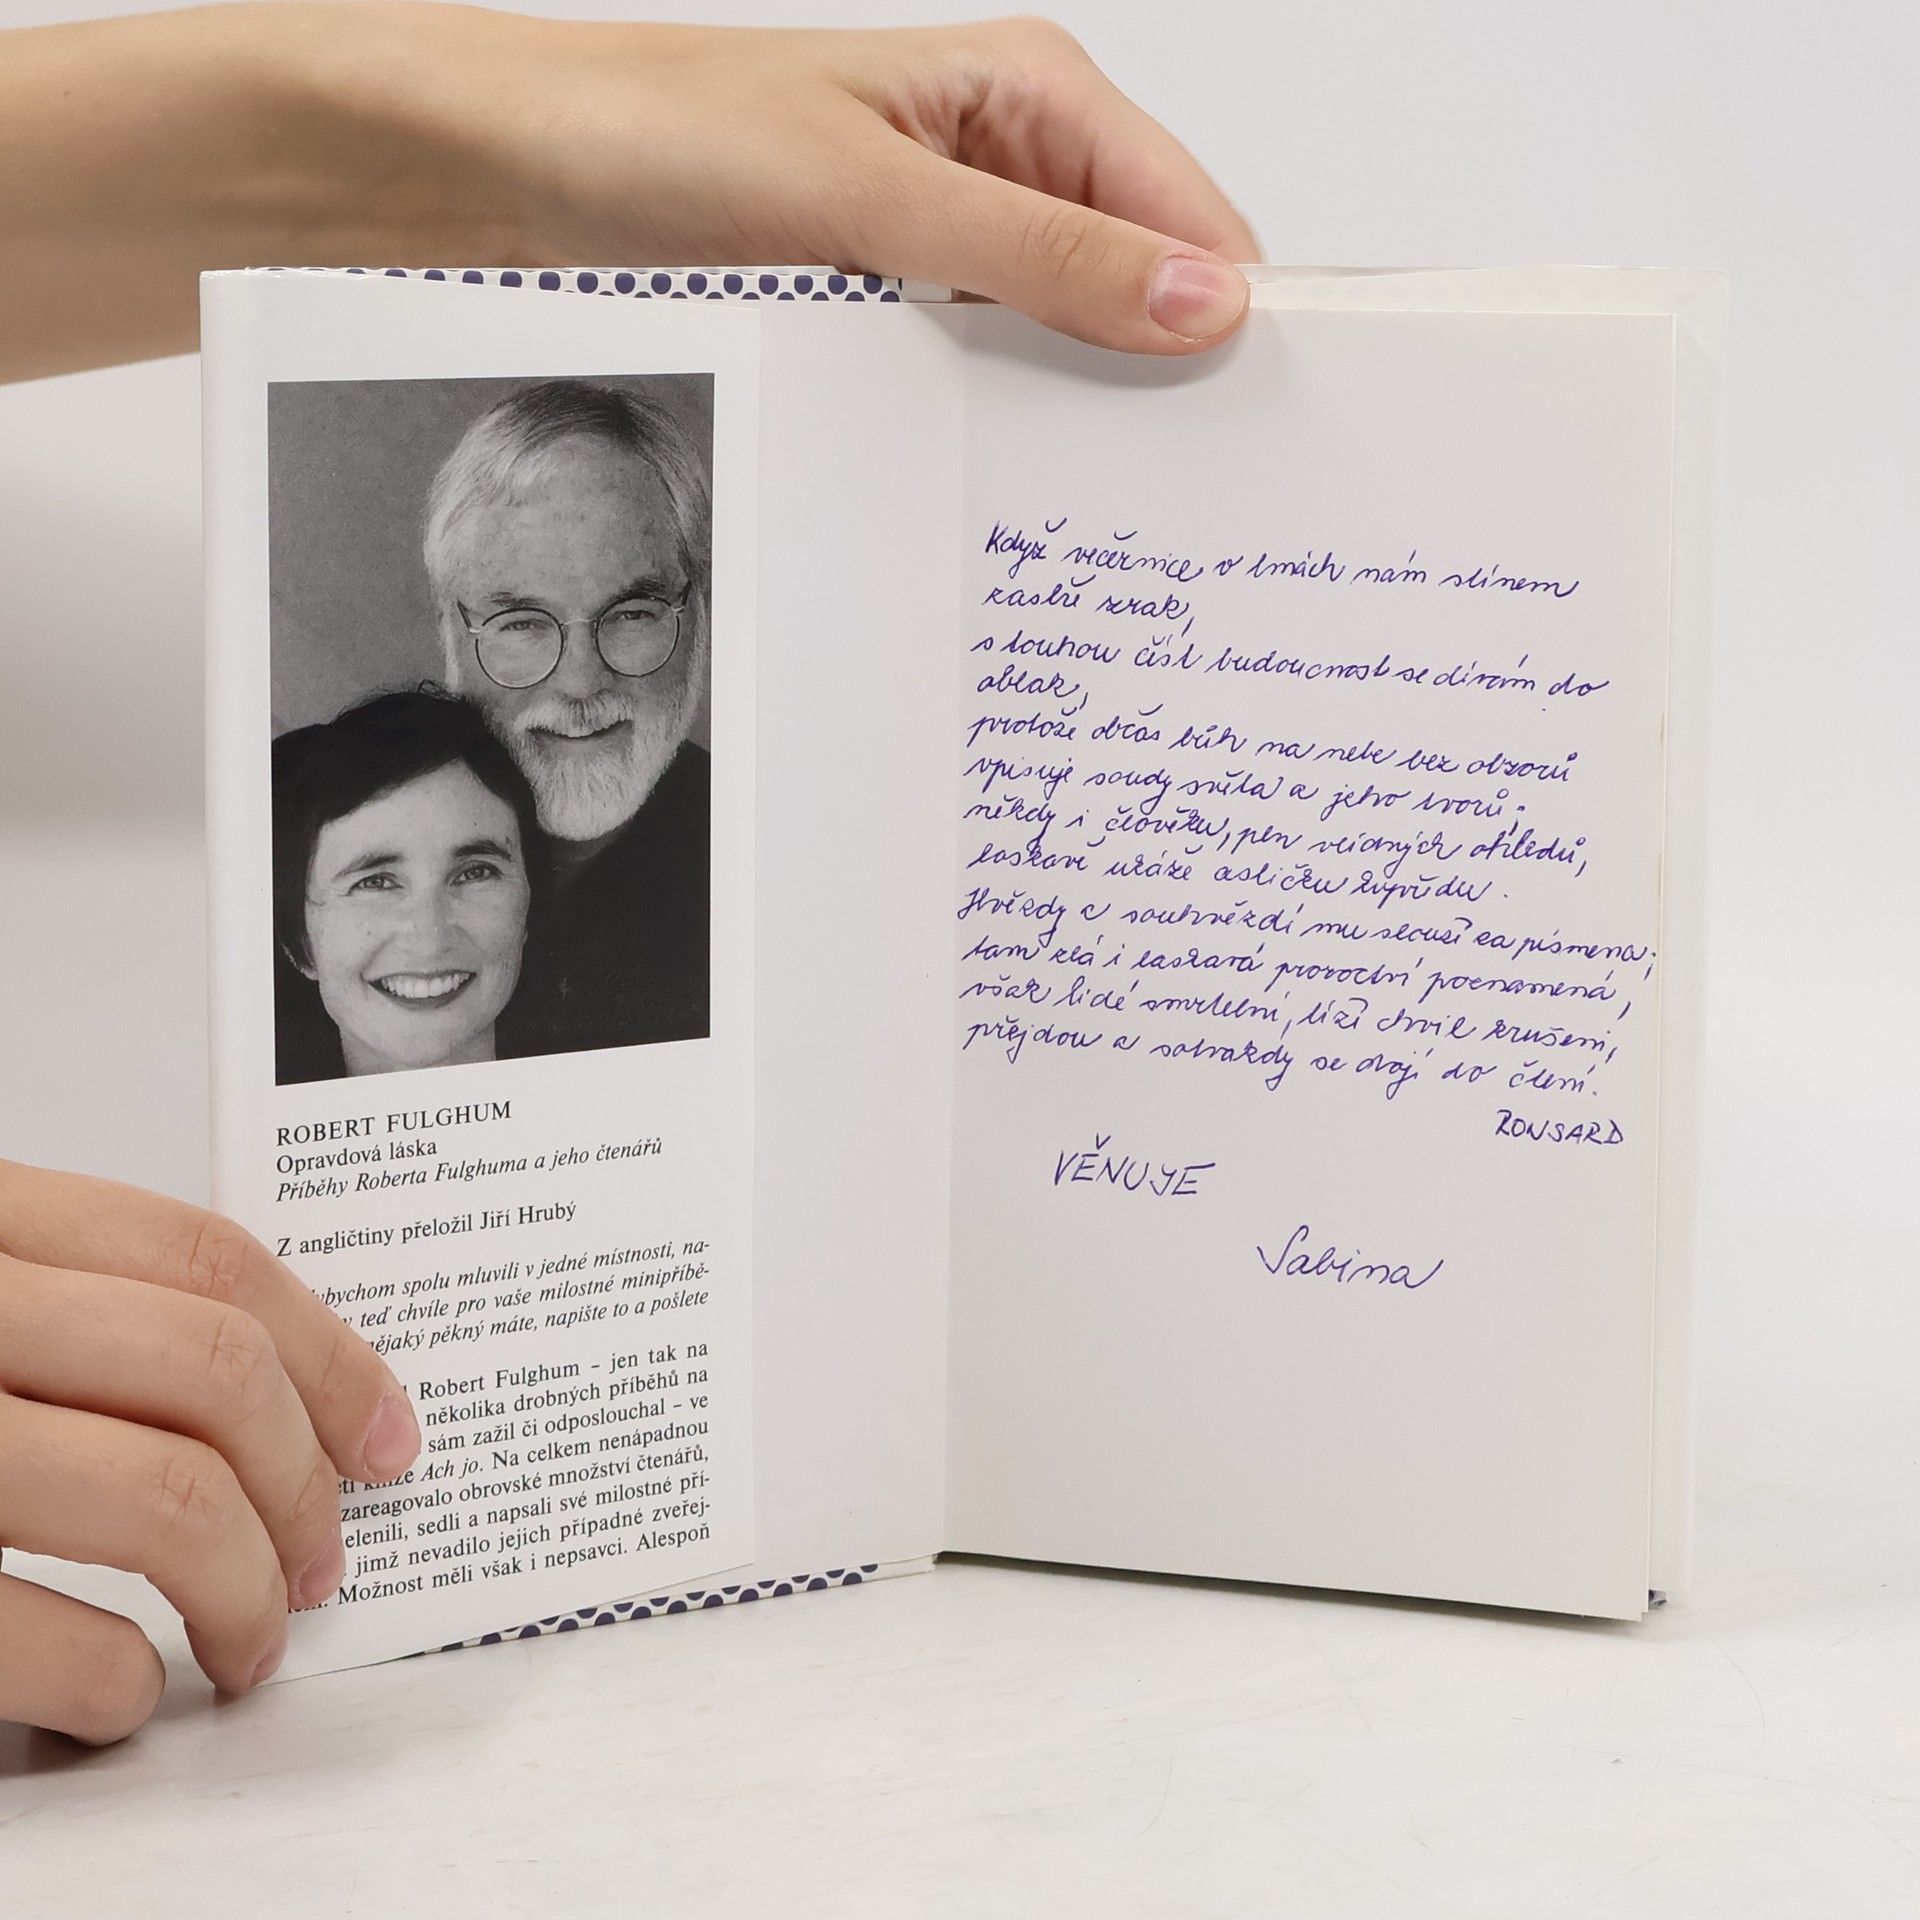 ROBERT FULGHUM
Opravdová láska
Příběhy Roberta Fulghuma a jeho čtenářů
Z angličtiny přeložil Jiří Hrubý
bychom spolu mluvili v jedné místnosti, na-
teď chvíle pro vaše milostné minipříbě-
nějaký pěkný máte, napište to a pošlete
Robert Fulghum – jen tak na
několika drobných příběhů na
sám zažil či odposlouchal – ve
Ach jo. Na celkem nenápadnou
zareagovalo obrovské množství čtenářů,
elenili, sedli a napsali své milostné pří-
jimž nevadilo jejich případné zveřej-
Možnost měli však i nepsavci. Alespoň
Když večernice v tmách nám stínem
zastře zrak,
s touhou číst budoucnost se dívám do
oblak,
protože občas bůh na nebe bez obzorů
vpisuje soudy světa a jeho tvorů;
někdy i člověku, pln vlídných ohledů,
laskavě ukáže cestičku kupředu.
Hvězdy a souhvězdí mu slouží za písmena;
tam zlá i laskavá proroctví poznamená,
však lidé smrtelní, tíží chvil zkrušeni,
přejdou a sotvakdy se dvojí do čtení.
RONSARD
VĚNUJE
Sabina